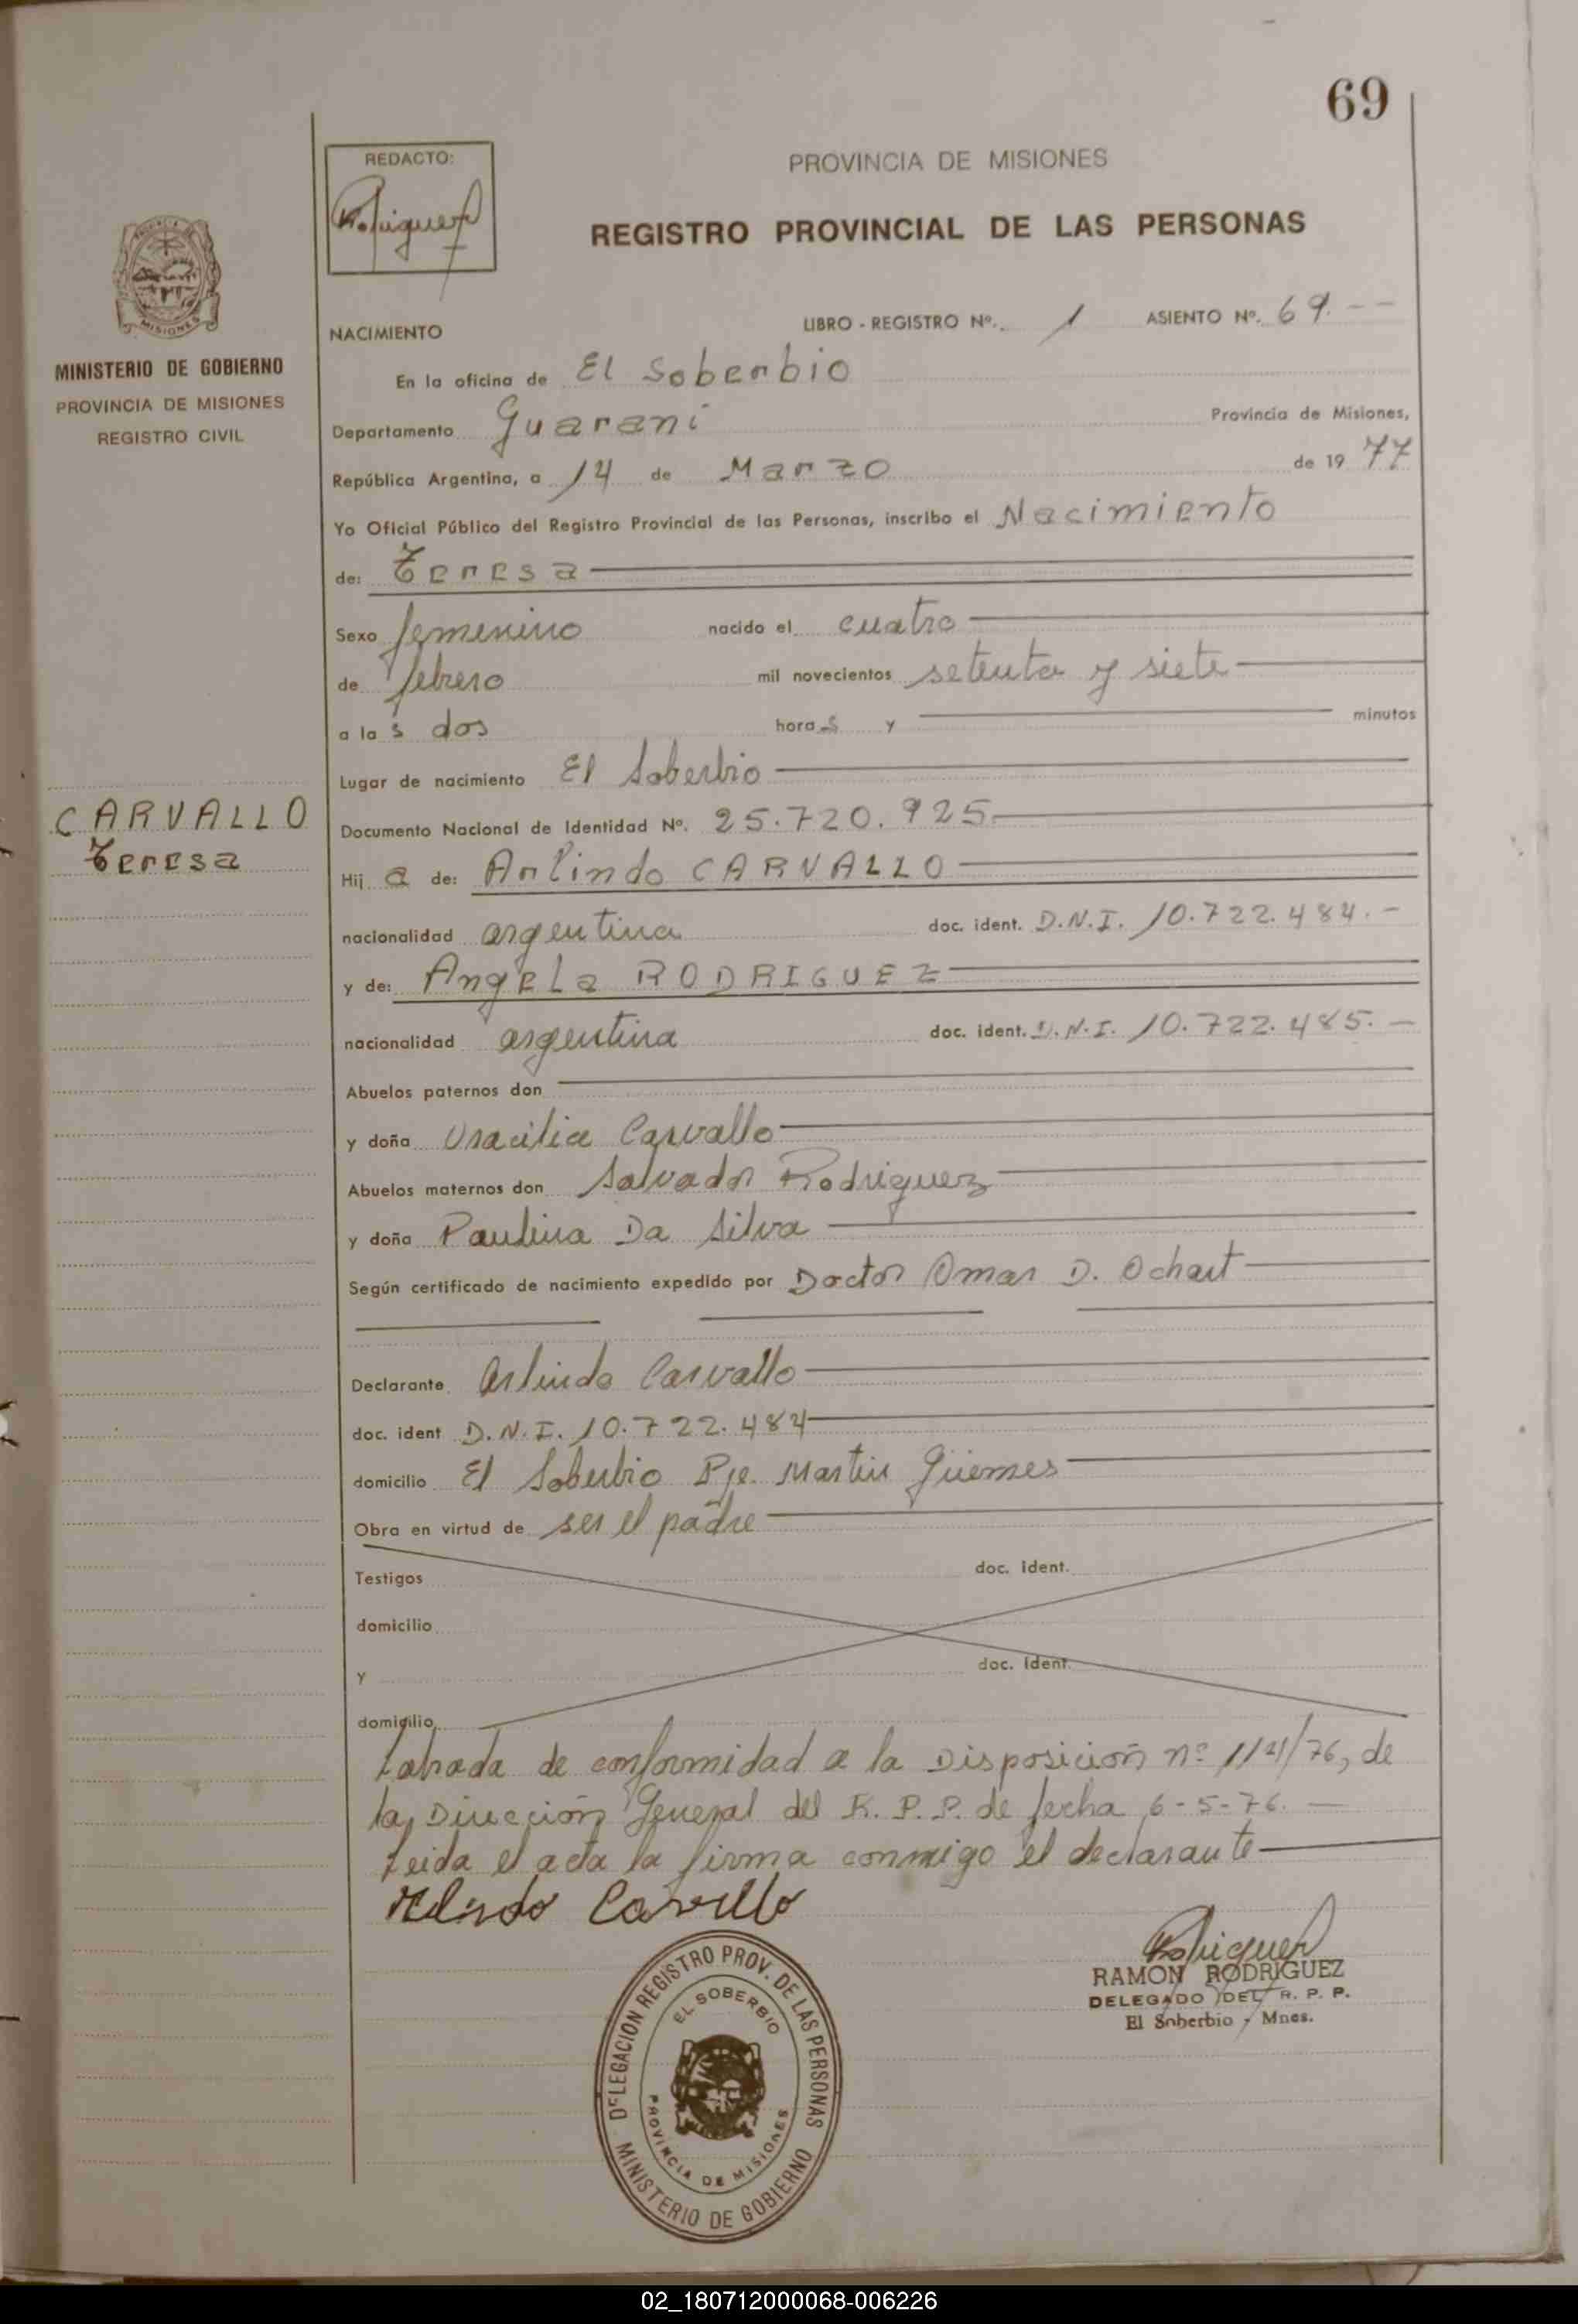 69
REDACTO:
PROVINCIA DE MISIONES
REGISTRO PROVINCIAL DE LAS PERSONAS
MISIONES
MINISTERIO DE GOBIERNO
PROVINCIA DE MISIONES
REGISTRO CIVIL
NACIMIENTO LIBRO - REGISTRO Nº. 1 ASIENTO Nº. 69. --
En la oficina de El Soberbio
Departamento Guarani Provincia de Misiones,
República Argentina, a 14 de Marzo de 19 77
Yo Oficial Público del Registro Provincial de las Personas, inscribo el Nacimiento
de: Teresa
Sexo femenino nacido el cuatro
de febrero mil novecientos setenta y siete
a las dos horas y minutos
Lugar de nacimiento El Soberbio
CARVALLO
Teresa
Documento Nacional de Identidad Nº. 25.720.925
Hija de: Arlindo CARVALLO
nacionalidad argentina doc. ident. D.N.I. 10.722.484.-
y de: Angela RODRIGUEZ
nacionalidad argentina doc. ident. D.N.I. 10.722.485.-
Abuelos paternos don
y doña Carvallo
Abuelos maternos don Salvador Rodriguez
y doña Paulina Da Silva
Según certificado de nacimiento expedido por Doctor Omar D. Ochart
Declarante Arlindo Carvallo
doc. ident D.N.I. 10.722.484
domicilio El Soberbio Pje. Martin Güemes
Obra en virtud de ser el padre
Testigos doc. ident.
domicilio
y doc. ident.
domicilio
Labrada de conformidad a la Disposición nº /76, de
la Dirección General del R. P. P. de fecha 6-5-76. -
Leida el acta la firma conmigo el declarante
Carvallo
RAMON RODRIGUEZ
DELEGADO DEL R. P. P.
El Soberbio - Mnes.
DELEGACION REGISTRO PROV. DE LAS PERSONAS
EL SOBERBIO
PROVINCIA DE MISIONES
MINISTERIO DE GOBIERNO
02_180712000068-006226